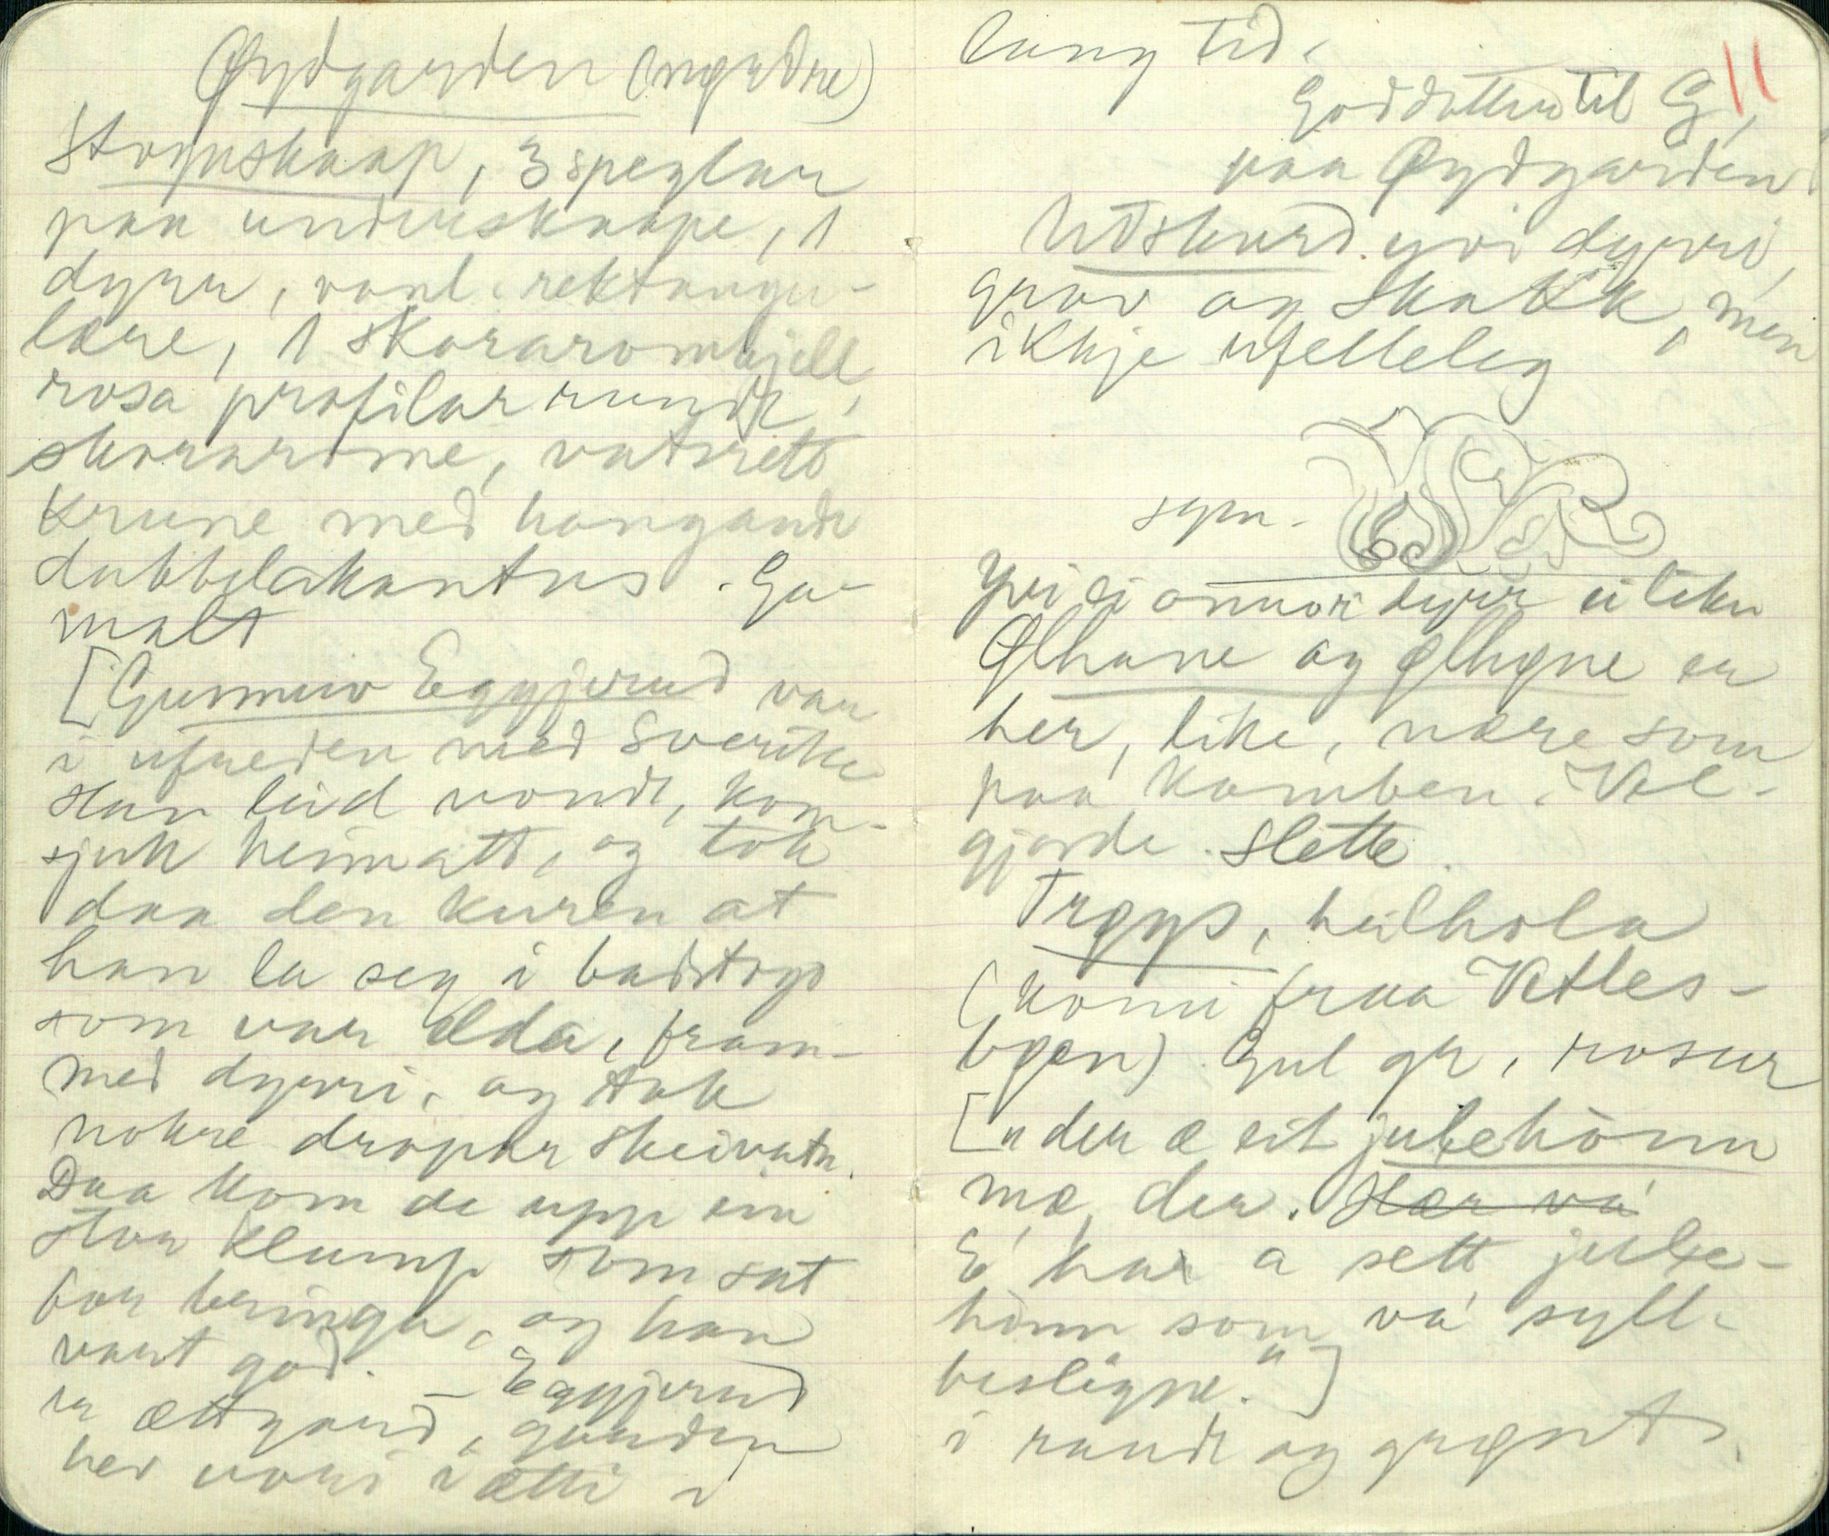 Øydgarden (nørdre)
Stoguskaap, 3 speglar
paa underskaape, 1
dyrr, vanl. rektangu-
lære, 1 skorarom kjell,
rosa profilar rundt
skorarome, vatrett
krune med hangande
dubbelakantus. Ga-
malt
[Gunnuv Eggjerud var
i ufreden med Sverike
Han leid vondt, kom
sjuk heimatt, og tok
daa den kuren at
han la seg i badstogo
som var elda, fram-
med dyrri, og tok
nokre dropar skeivatn.
Daa kom de upp ein
stor klump som sat
for bringa, og han
vart god. – Eggjerud
er ættgard, garden
hev vori i ætti i
lang tid.
11
Goddotter til G.
paa Øydgarden
Utskurd yvi dyrri,
grov og skakk, men
ikkje ufelleleg
sym.
Yvi ei onnor dyrr ei liku
Ølhane og ølhøne er
her, like, nære som
paa kamben. Vel-
gjorde. Slette.
Trøys, heilhola
(komi fraa Vetles-
bøen) Gul gr, rosur
["der æ eit jubehònn
mæ der. Hær vá
E' har a sett jube-
hònn som vá syll-
beslègne."]
i raudt og grønt.